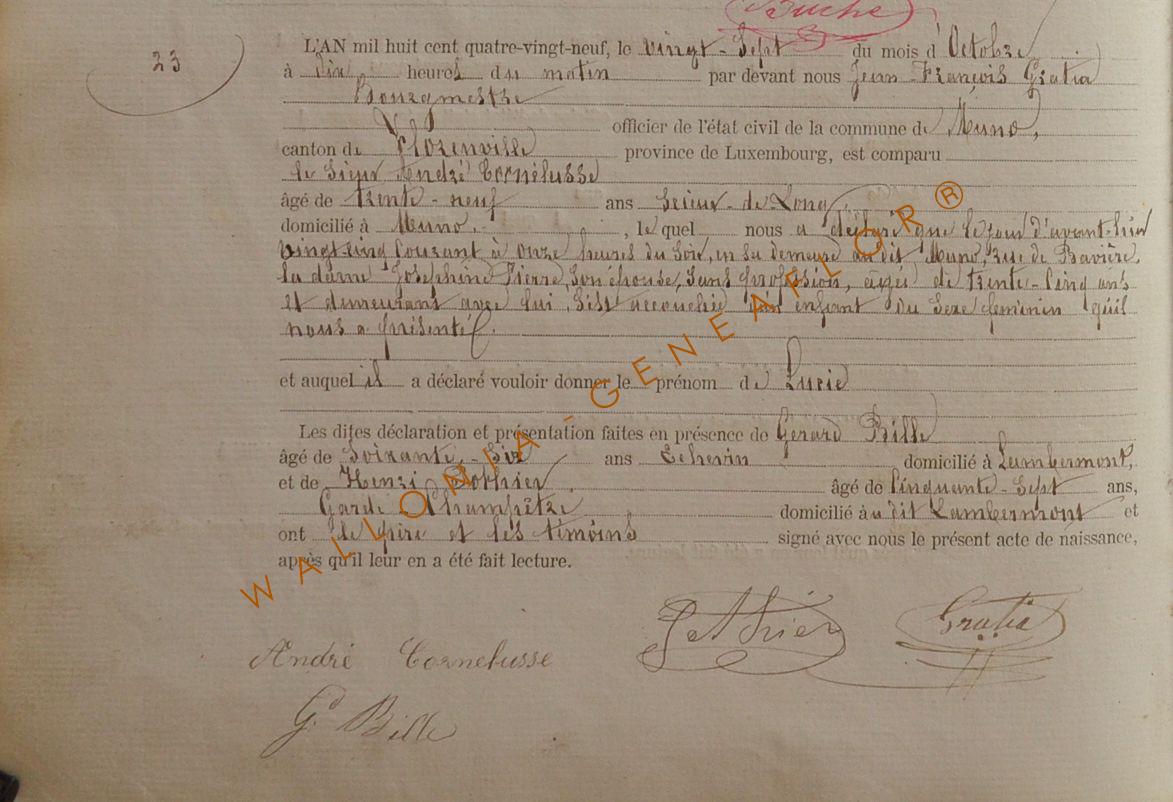 Buche
23
L'AN mil huit cent quatre-vingt-neuf, le vingt-Sept du mois d'Octobre
à dix heures du matin par devant nous Jean-François Gratia
Bourgmestre
officier de l'état civil de la commune de Muno,
canton de Florenville province de Luxembourg, est comparu
le Sieur André Cornélusse
âgé de trente-neuf ans Scieur-de Long,
domicilié à Muno, , lequel nous a déclaré que le jour d'avant-hier
vingt-cinq courant à onze heures du Soir, en sa demeure au dit Muno, Rue de Bavière,
la dame Joséphine Pierre, Son épouse, Sans profession, âgée de trente-cinq ans
et demeurant avec lui, S'est accouchée d'un enfant du Sexe féminin qu'il
nous a présenté
et auquel il a déclaré vouloir donner le prénom de Lucie
Les dites déclaration et présentation faites en présence de Gérard Bille
âgé de Soixante-Six ans Echevin domicilié à Lambermont,
et de Henri Pothier, âgé de Cinquante-Sept ans,
Garde Champêtre domicilié au dit Lambermont et
ont le père et les témoins signé avec nous le présent acte de naissance,
après qu'il leur en a été fait lecture.
Pothier Gratia
André Cornelusse
Gd Bille
WALLONIA-GENEAFLOR®